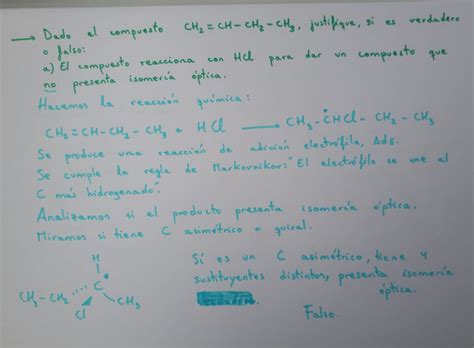 → Dado al compuesto CH₂=CH-CH₂-CH₃, justifique, si es verdadero
o falso:
a) El compuesto reacciona con HCl para dar un compuesto que
no presenta isomería óptica.
Hacemos la reacción química:
CH₂=CH-CH₂-CH₃ + HCl → CH₃-*CHCl-CH₂-CH₃
Se produce una reacción de adición electrófila, AdE.
Se cumple la regla de Markovnikov: "El electrófilo se une al
C más hidrogenado".
Analizamos si el producto presenta isomería óptica.
Miramos si tiene C asimétrico o quiral.
H
C *
CH₃-CH₂
Cl
CH₃
Sí es un C asimétrico, tiene 4
sustituyentes distintos, presenta isomería
óptica.
Falso.